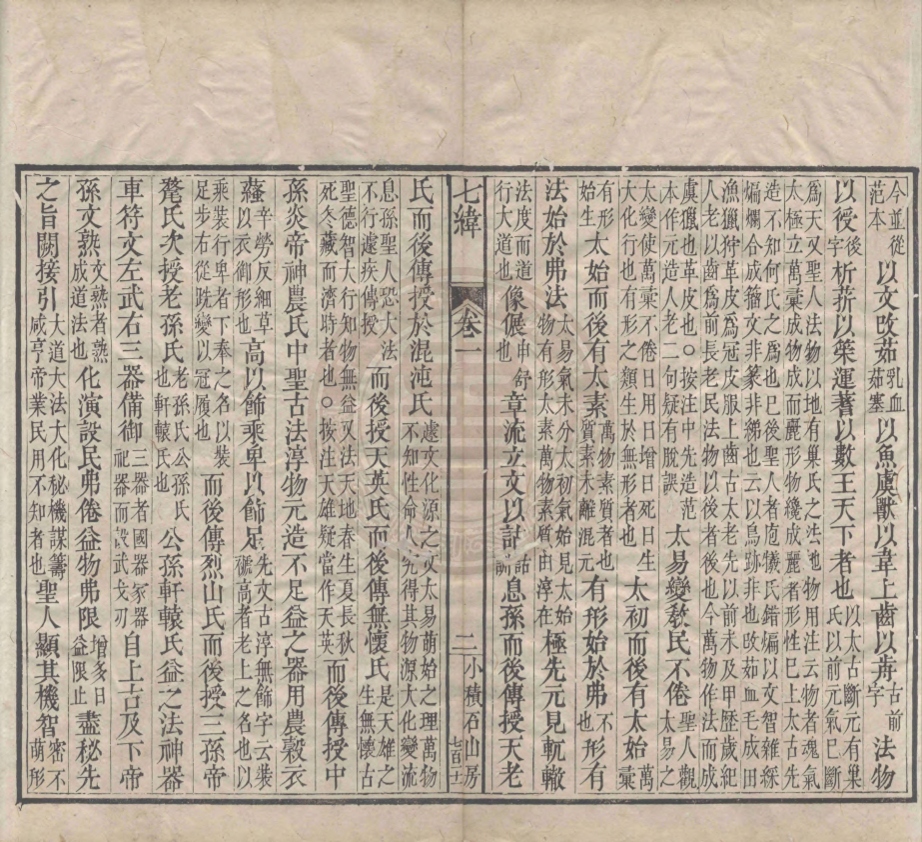 今並從范本以文改茹乳血茹塞以魚虞獸以韋上齒以舟古前字法物
以授後字析菥以筴運蓍以數王天下者也以太古斷元有巢氏以前元氣巳斷
為天又聖人法物以地有巢氏之法地物用注云物者魂氣太極立萬彙成物成而麗形物纔成麗者形性巳上太古古先
造不知何氏之為也巳後聖人者庖犧氏錯煸以文智雜綵煸爛合成籀文非篆非也云以鳥跡非也改茹血毛成田
漁獵狩革皮為冠皮服上齒古太老先以前未及甲歷歲紀人老以齒為前長老民法物以後者後也今萬物作法而成
虞獵也革皮也○按注中先造范本作元造人老二句疑有脫誤太易變敎民不倦聖人觀太易之
太變使萬彙不倦日用日增日死日生大化行也太初有形之類生於無形者也太初而後有太始萬彙
有形始生太始而後有太素萬物素質者也質素未離混元有形始於弗不也形有
法始於弗法太易氣未分太初氣始見太始物有形太素萬物素質由淳在極先元見軏轍
法度而道行大道也像㑥舒申也章流立文以詁詁訓息孫而後傳授天老
七緯 卷一 二 小積石山房 七百十
氏而後傳授於混沌氏遽文化源之文太易萌始之理萬物不知性命人究得其物源大化變流
息孫聖人恐大法不行遽疾傳授而後授天英氏而後傳無懷氏是天雄之生無懷古
聖德智大行知物無益又法天地春生夏長秋死冬藏而濟時者○按注天雄疑當作天英而後傳授中
孫炎帝神農氏中聖古法淳物元造不足益之器用農穀衣
蘊辛勞反細草以衣御形也高以飾乘卑以飾足先文古淳無飾字云裝高者老上之名也以
乘裝行卑者下奉之名以裝足步右從跣變以冠履也而後傳烈山氏而後授三孫帝
釐氏次授老孫氏老孫氏公孫氏也軒轅氏也公孫軒轅氏益之法神器
車符文左武右三器備御三器者國器家器祀器而設武戈刃自上古及下帝
孫文熟文熟者熟成道法也化演設民弗倦益物弗限增多日益限止盡秘先
之旨闕接引大道大法大化秘機謀籌咸亨帝業民用不知者也聖人顯其機智密不萌形